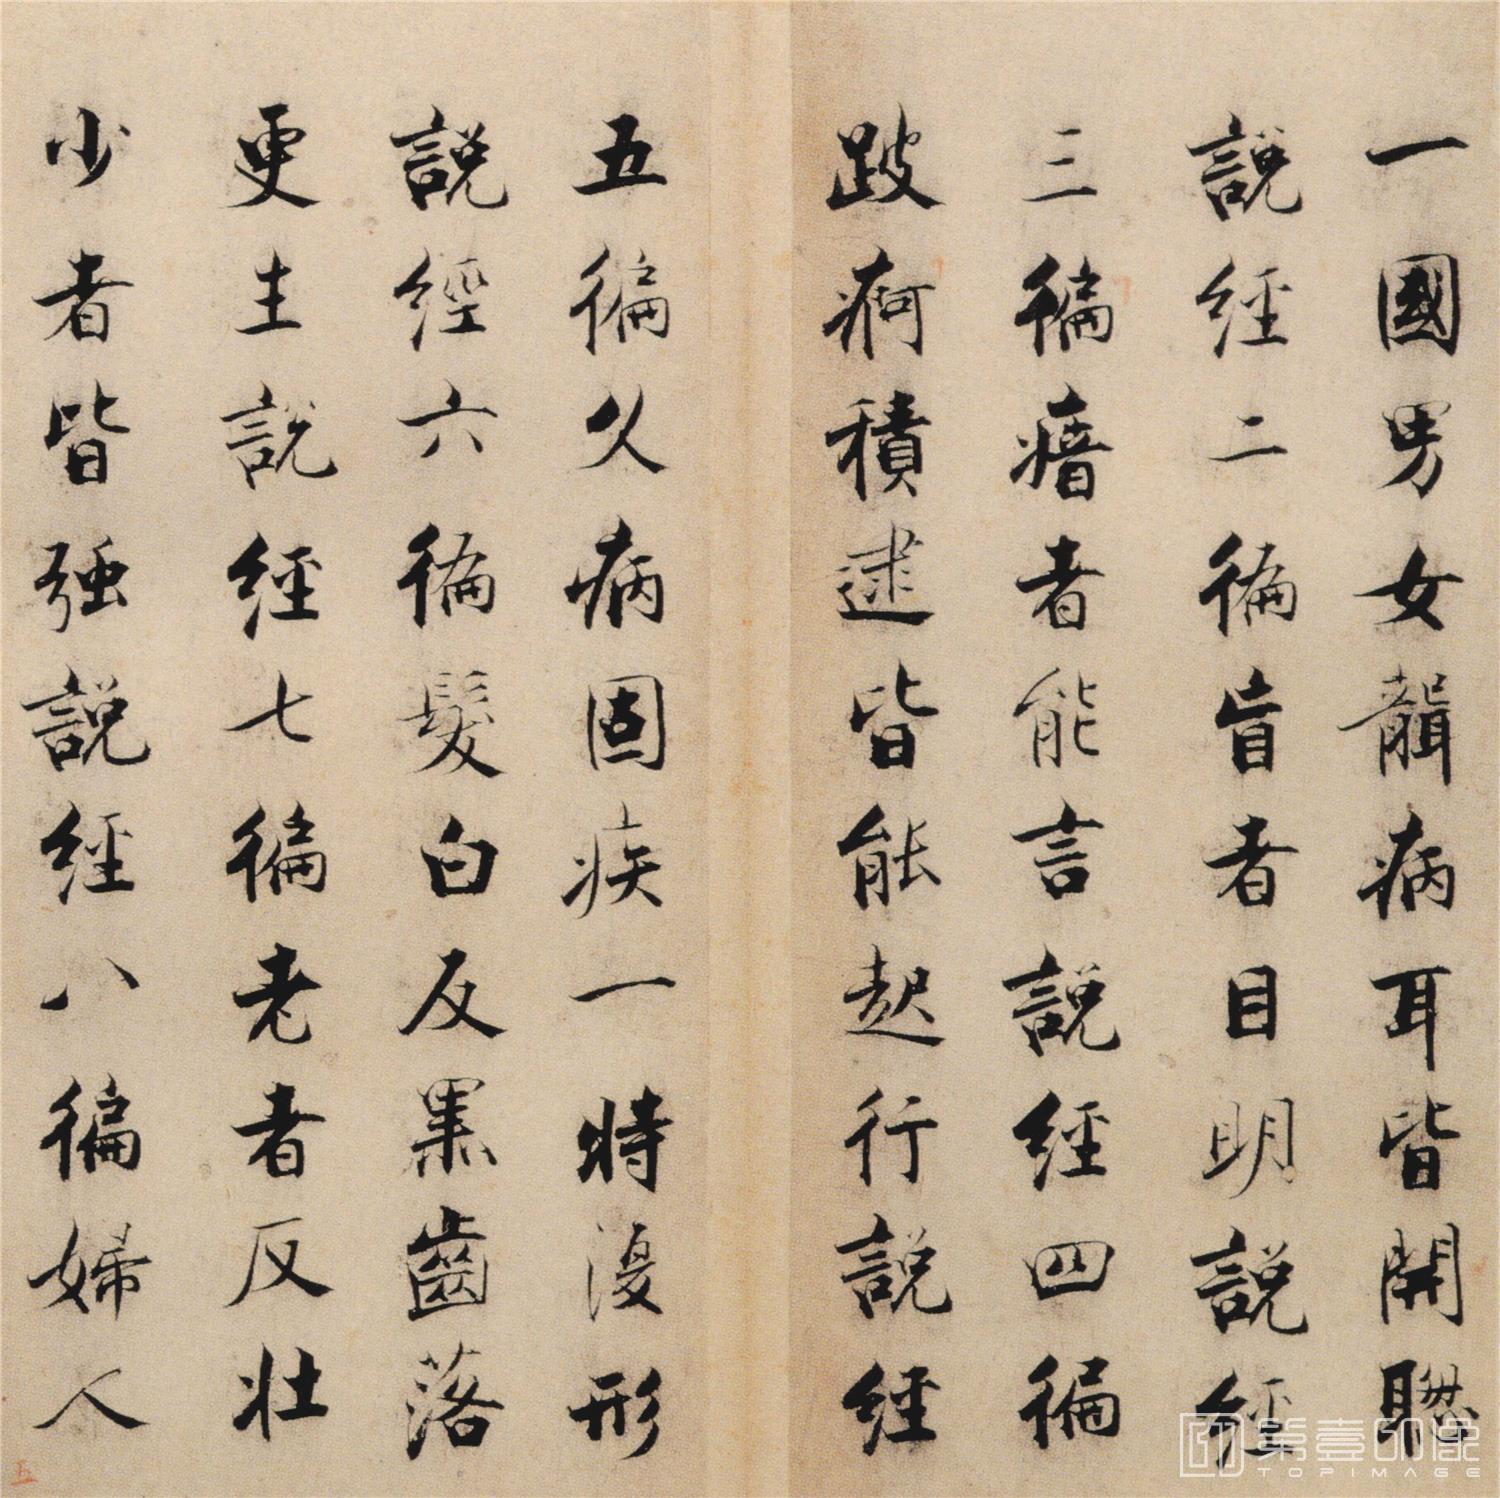 一國男女聾病耳皆開聰
說經二徧盲者目明說經
三徧瘖者能言說經四徧
跛痾積逮皆能起行說經
五徧久病固疾一時復形
說經六徧髮白反黑齒落
更生說經七徧老者反壯
少者皆強說經八徧婦人
五
第壹印像
TOPIMAGE